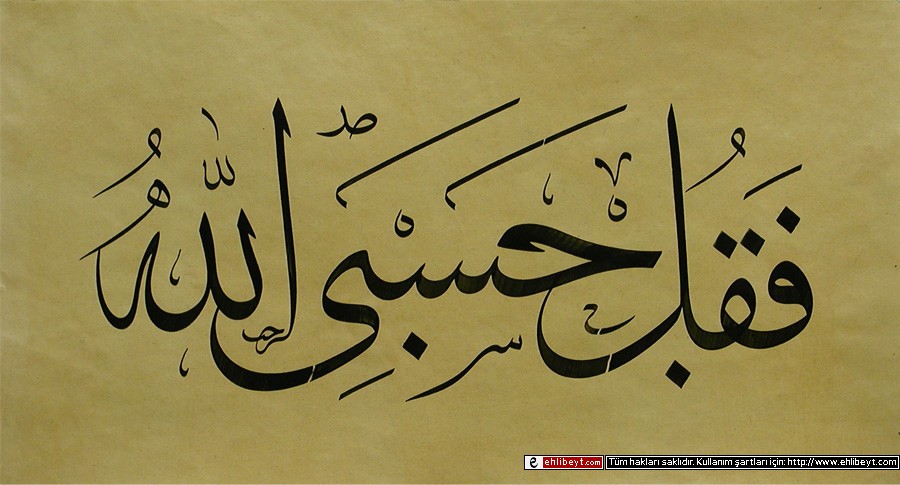 فَقُلْ حَسْبِيَ اللّٰهُ
ehlibeyt.com Tüm hakları saklıdır. Kullanım şartları için: http://www.ehlibeyt.com